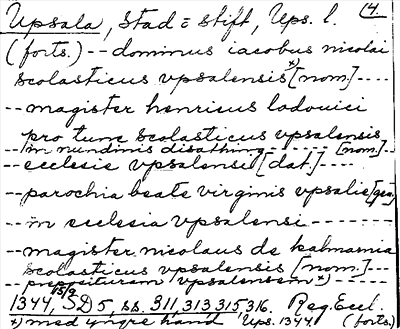 Upsala, Stad = Stift, Ups. l. 14.
(forts.) -- dominus iacobus nicolai
scolasticus vpsalensis*) [nom.] ----
-- magister henricus lodouici
pro tunc scolasticus vpsalensis
-- in nundinis disathing ---- [nom.] --
-- ecclesie vpsalensi [dat.] ----
-- parochia beate virginis vpsalie [gen.]
-- in ecclesia vpsalensi ------
-- magister nicolaus de kalmarnia
scolasticus vpsalensis [nom.] ---
-- preposituram vpsalensem *) ----
1344, 15/2 SD 5, ss. 311, 313, 315, 316. Reg. Eccl.
*) med yngre hand Ups. 1344 (forts.)